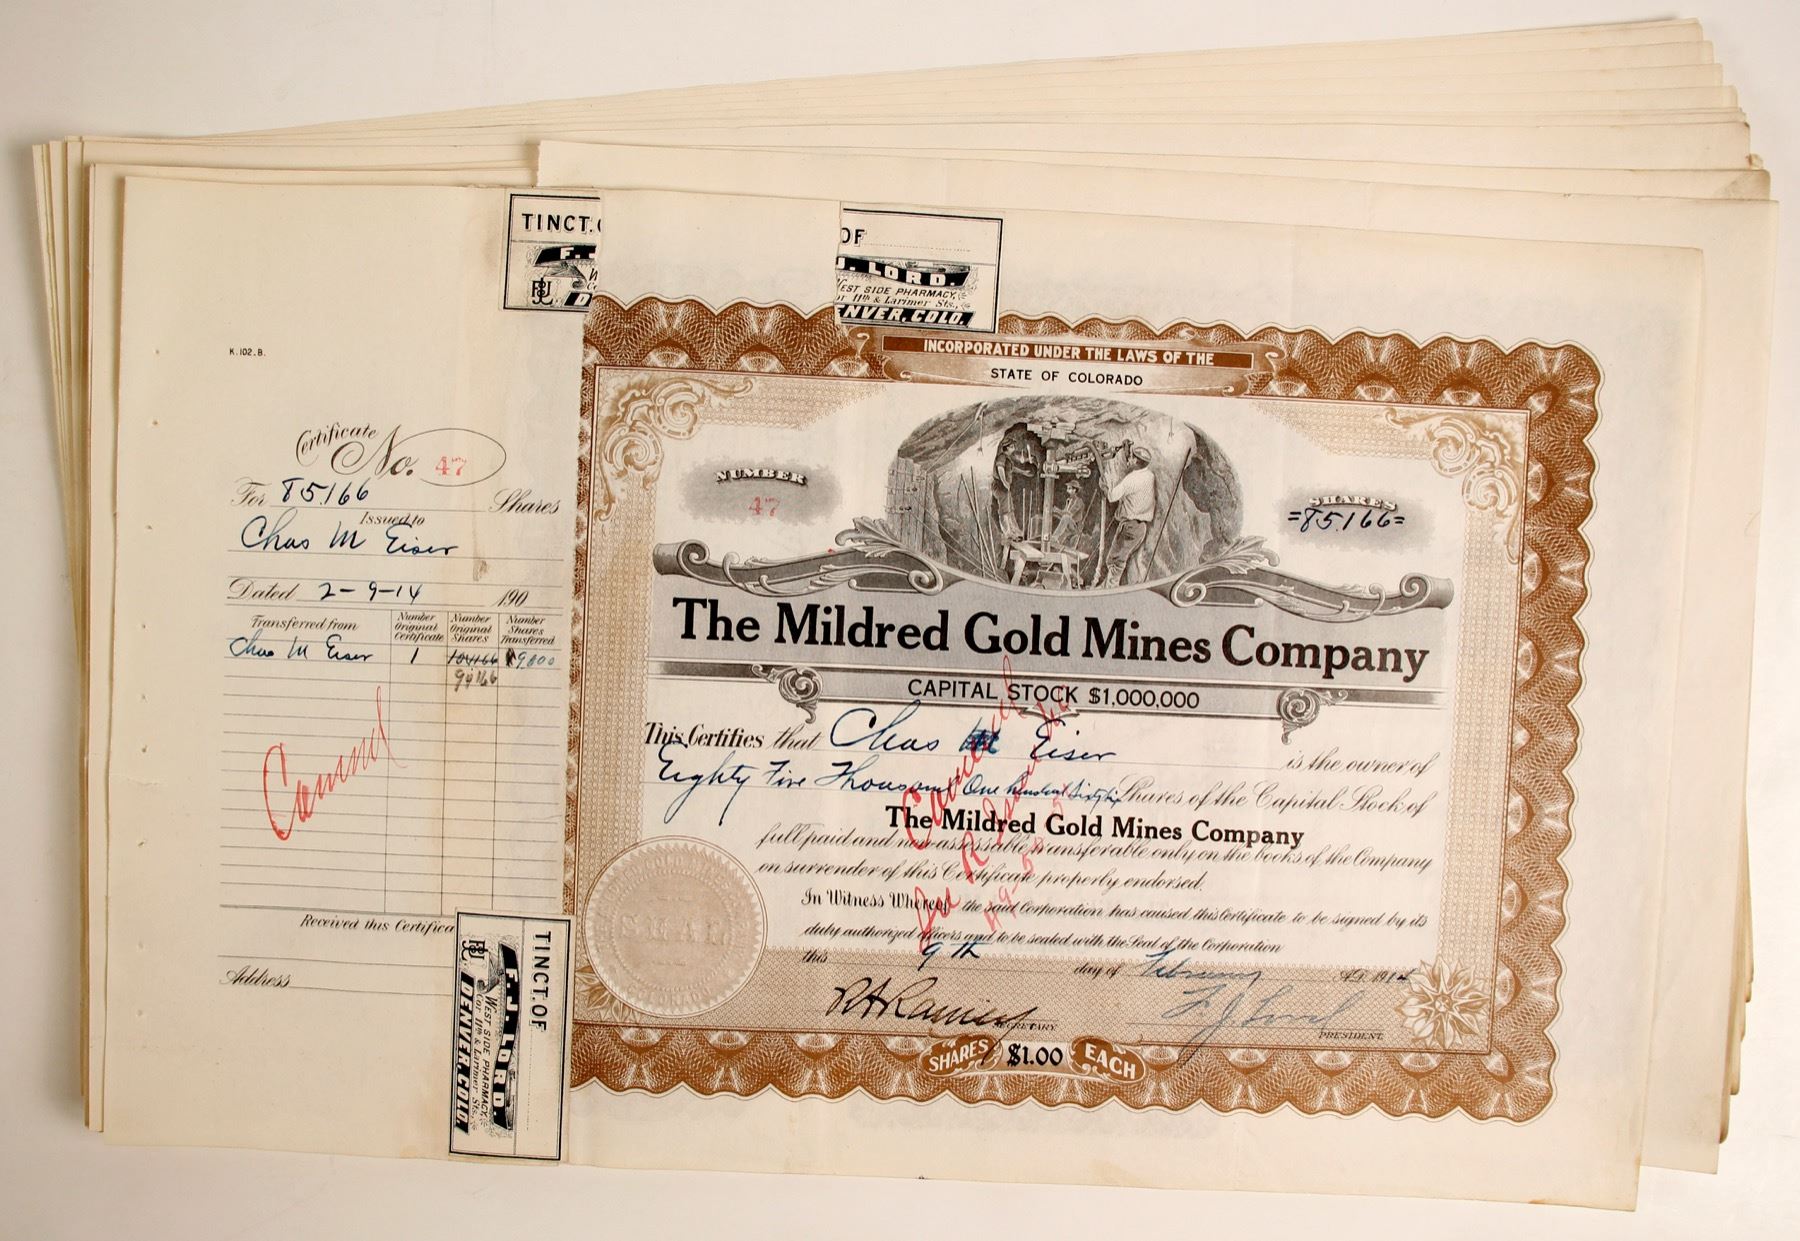 TINCT.O
F.
W
Co
D
OF
J. LORD.
WEST SIDE PHARMACY,
or 11th & Larimer Sts.,
ENVER, COLO.
K. 102. B.
Certificate
No. 47
For 85166 Shares
Issued to
Chas M Eiser
Dated 2-9-14 190
Transferred from
Number Original Certificate
Number Original Shares
Number Shares Transferred
Chas M Eiser 1 104166 9000
94166
Received this Certifica
Address
TINCT. OF
F. J. LORD.
WEST SIDE PHARMACY,
Cor 11th & Larimer Sts.,
DENVER, COLO.
INCORPORATED UNDER THE LAWS OF THE
STATE OF COLORADO
NUMBER
47
SHARES
=85166=
The Mildred Gold Mines Company
CAPITAL STOCK $1,000,000
This Certifies that Chas M Eiser is the owner of
Eighty Five Thousand One hundred Sixty six Shares of the Capital Stock of
The Mildred Gold Mines Company
full paid and non-assessable transferable only on the books of the Company
on surrender of this Certificate properly endorsed.
In Witness Whereof the said Corporation has caused this Certificate to be signed by its
duly authorized officers and to be sealed with the Seal of the Corporation
this 9th day of February A.D. 1914
R A Ramsey
SECRETARY
F. J. Lord
PRESIDENT
SEAL
COLORADO
SHARES $1.00 EACH